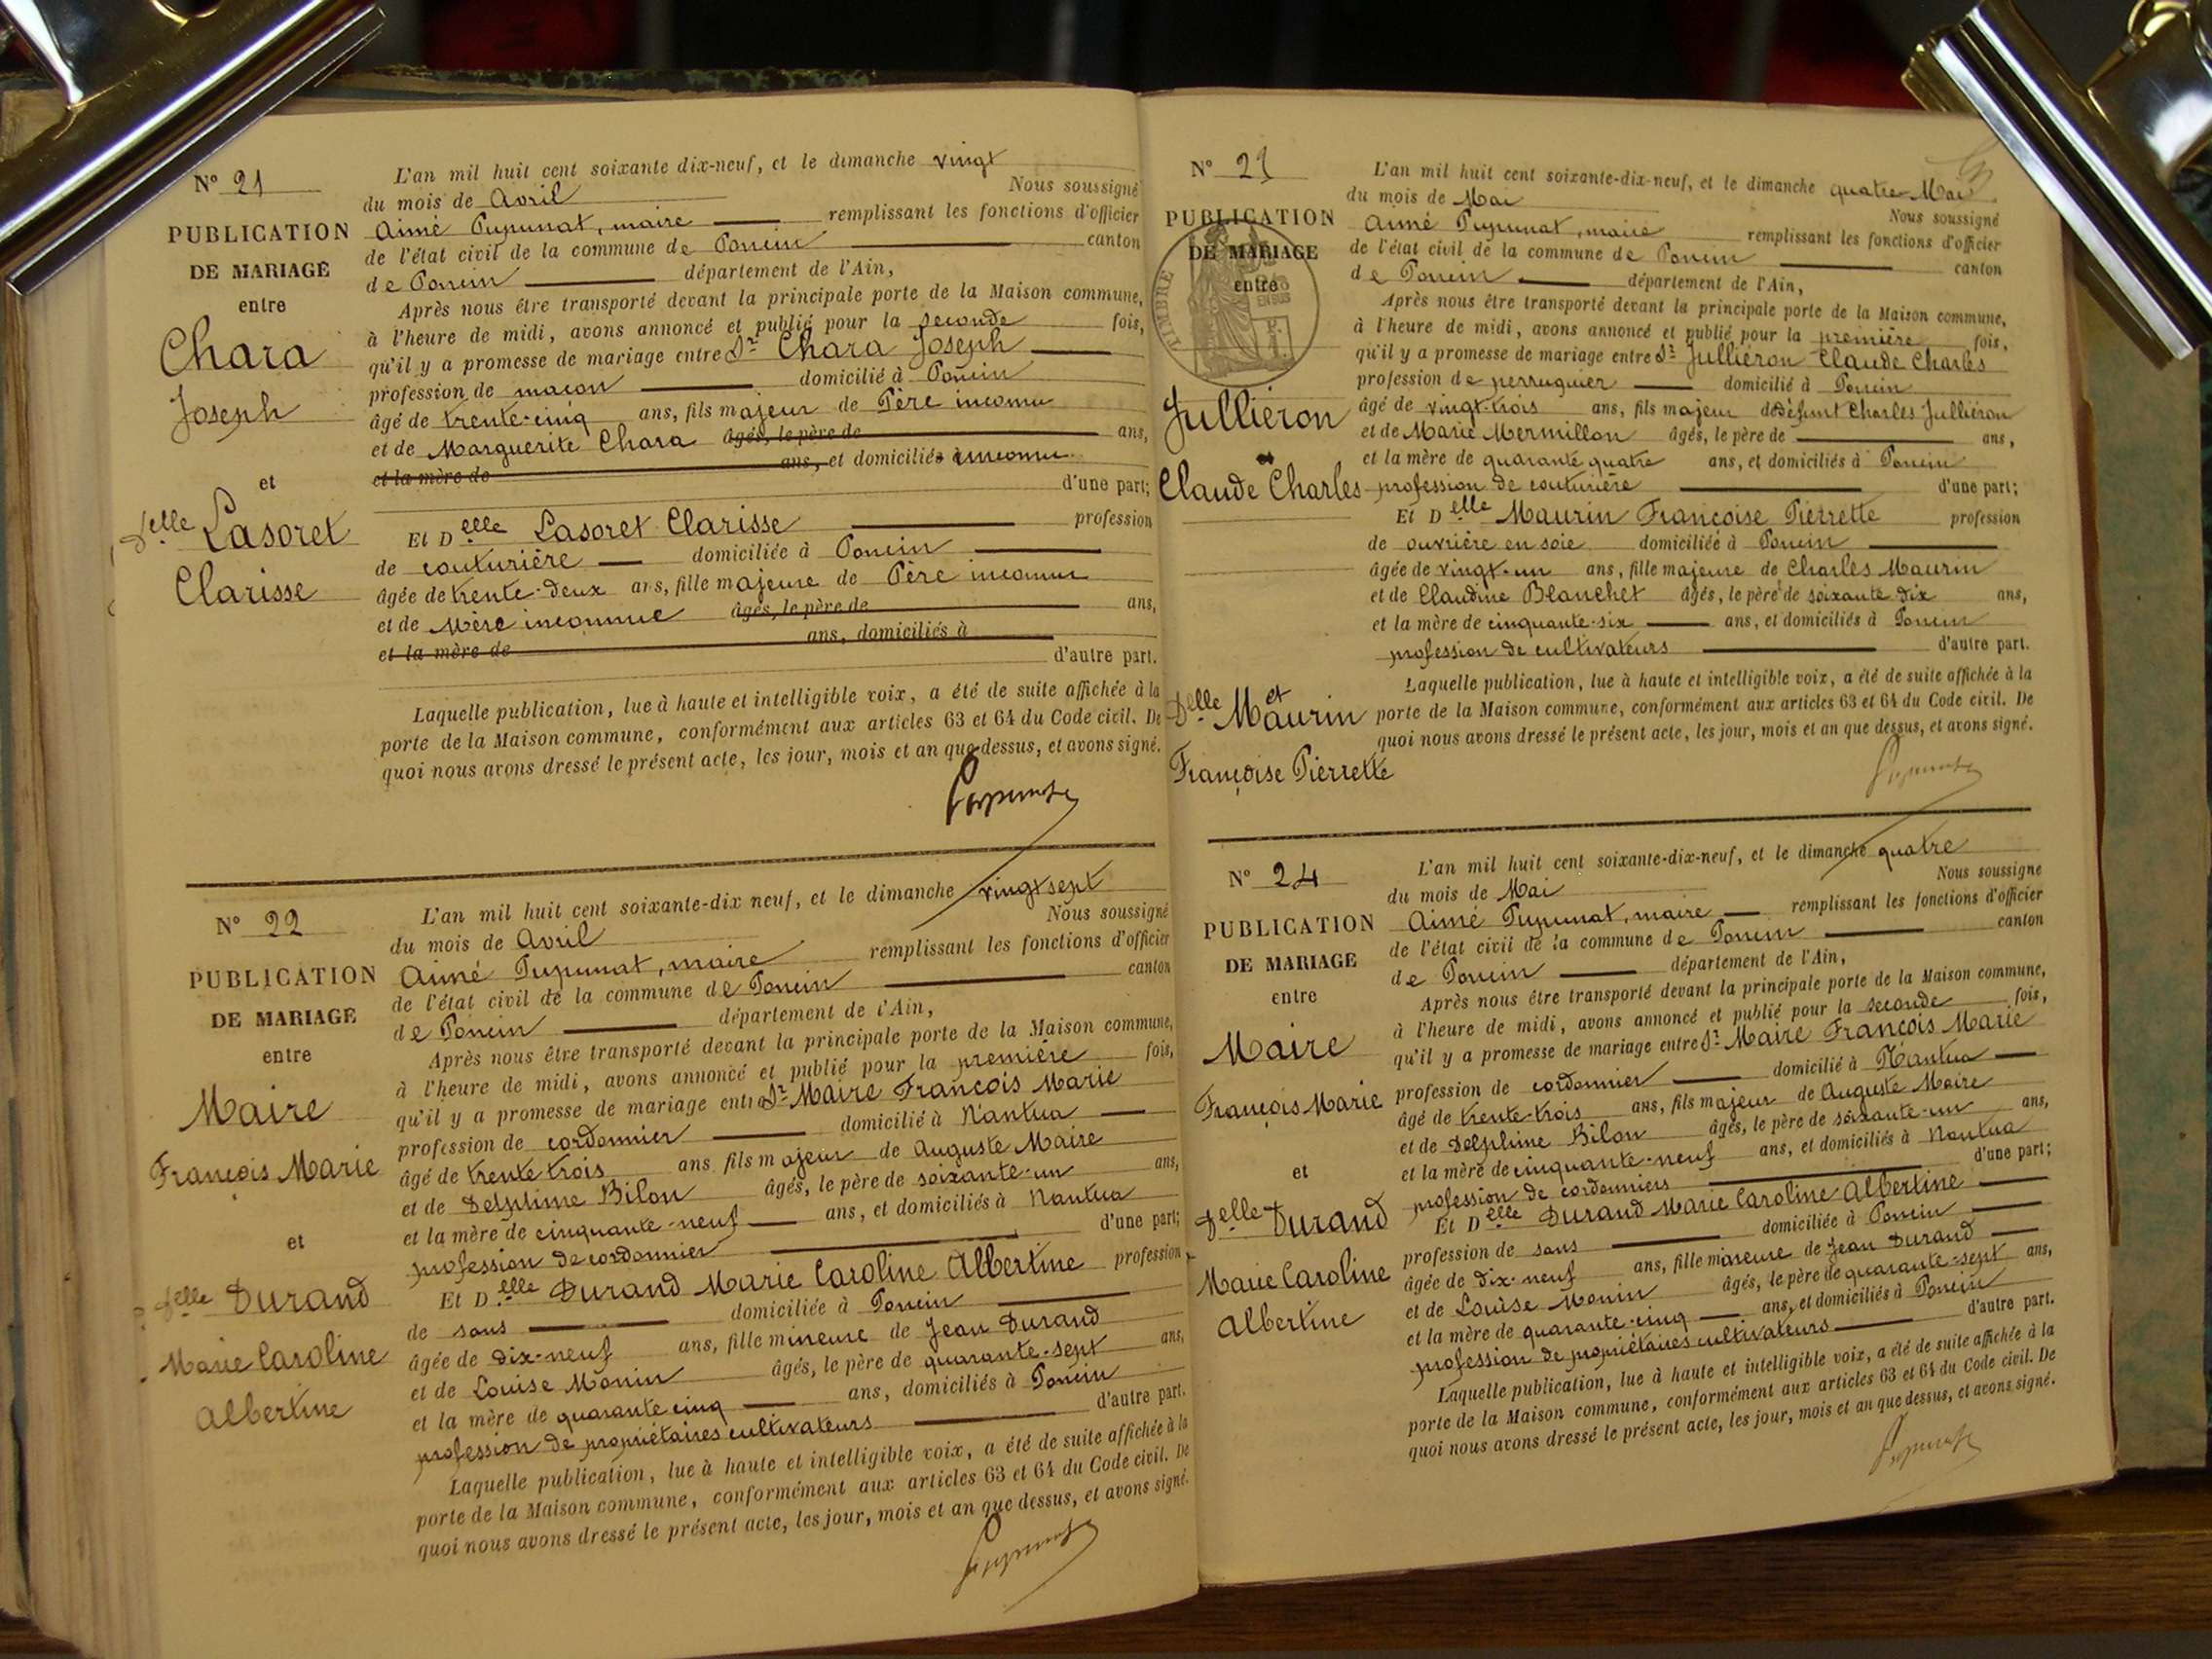 N° 21
PUBLICATION
DE MARIAGE
entre
Chara
Joseph
et
Delle Lasoret
Clarisse
L'an mil huit cent soixante dix-neuf, et le dimanche vingt
du mois de Avril Nous soussigné
Aimé Pupunat, maire remplissant les fonctions d'officier
de l'état civil de la commune de Poncin canton
de Poncin département de l'Ain,
Après nous être transporté devant la principale porte de la Maison commune,
à l'heure de midi, avons annoncé et publié pour la seconde fois,
qu'il y a promesse de mariage entre Sr Chara Joseph
profession de maçon domicilié à Poncin
âgé de trente-cinq ans, fils majeur de Père inconnu
et de Marguerite Chara âgés, le père de ans,
et la mère de ans, et domiciliés à inconnu
d'une part;
Et Delle Lasoret Clarisse profession
de couturière domiciliée à Poncin
âgée de trente-deux ans, fille majeure de Père inconnu
et de Mère inconnue âgés, le père de ans,
et la mère de ans, domiciliés à
d'autre part.
Laquelle publication, lue à haute et intelligible voix, a été de suite affichée à la
porte de la Maison commune, conformément aux articles 63 et 64 du Code civil. De
quoi nous avons dressé le présent acte, les jour, mois et an que dessus, et avons signé.
Pupunat
N° 22
PUBLICATION
DE MARIAGE
entre
Maire
François Marie
et
Delle Durand
Marie Caroline
Albertine
L'an mil huit cent soixante-dix neuf, et le dimanche vingt sept
du mois de Avril Nous soussigné
Aimé Pupunat, maire remplissant les fonctions d'officier
de l'état civil de la commune de Poncin canton
de Poncin département de l'Ain,
Après nous être transporté devant la principale porte de la Maison commune,
à l'heure de midi, avons annoncé et publié pour la première fois,
qu'il y a promesse de mariage entre Sr Maire François Marie
profession de cordonnier domicilié à Nantua
âgé de trente trois ans fils majeur de Auguste Maire
et de Delphine Bilon âgés, le père de soixante-un ans,
et la mère de cinquante-neuf ans, et domiciliés à Nantua
profession de cordonnier d'une part;
Et Delle Durand Marie Caroline Albertine profession
de sans domiciliée à Poncin
âgée de dix-neuf ans, fille mineure de Jean Durand
et de Louise Monin âgés, le père de quarante-sept ans,
et la mère de quarante cinq ans, domiciliés à Poncin
profession de propriétaires cultivateurs d'autre part.
Laquelle publication, lue à haute et intelligible voix, a été de suite affichée à la
porte de la Maison commune, conformément aux articles 63 et 64 du Code civil. De
quoi nous avons dressé le présent acte, les jour, mois et an que dessus, et avons signé.
Pupunat
N° 23
PUBLICATION
DE MARIAGE
entre
TIMBRE
Jullieron
et
Claude Charles
et
Delle Maurin
Françoise Pierrette
L'an mil huit cent soixante-dix-neuf, et le dimanche quatre Mai
du mois de Mai Nous soussigné
Aimé Pupunat, maire remplissant les fonctions d'officier
de l'état civil de la commune de Poncin canton
de Poncin département de l'Ain,
Après nous être transporté devant la principale porte de la Maison commune,
à l'heure de midi, avons annoncé et publié pour la première fois,
qu'il y a promesse de mariage entre Sr Jullieron Claude Charles
profession de perruquier domicilié à Poncin
âgé de vingt-trois ans, fils majeur de défunt Charles Jullieron
et de Marie Mermillon âgés, le père de ans,
et la mère de quarante quatre ans, et domiciliés à Poncin
profession de couturière d'une part;
Et Delle Maurin Françoise Pierrette profession
de ouvrière en soie domiciliée à Poncin
âgée de vingt-un ans, fille majeure de Charles Maurin
et de Claudine Blanchet âgés, le père de soixante dix ans,
et la mère de cinquante-six ans, et domiciliés à Poncin
profession de cultivateurs d'autre part.
Laquelle publication, lue à haute et intelligible voix, a été de suite affichée à la
porte de la Maison commune, conformément aux articles 63 et 64 du Code civil. De
quoi nous avons dressé le présent acte, les jour, mois et an que dessus, et avons signé.
Pupunat
N° 24
PUBLICATION
DE MARIAGE
entre
Maire
François Marie
et
Delle Durand
Marie Caroline
Albertine
L'an mil huit cent soixante-dix-neuf, et le dimanche quatre
du mois de Mai Nous soussigné
Aimé Pupunat, maire remplissant les fonctions d'officier
de l'état civil de la commune de Poncin canton
de Poncin département de l'Ain,
Après nous être transporté devant la principale porte de la Maison commune,
à l'heure de midi, avons annoncé et publié pour la seconde fois,
qu'il y a promesse de mariage entre Sr Maire François Marie
profession de cordonnier domicilié à Nantua
âgé de trente-trois ans, fils majeur de Auguste Maire
et de Delphine Bilon âgés, le père de soixante-un ans,
et la mère de cinquante-neuf ans, et domiciliés à Nantua
profession de cordonniers d'une part;
Et Delle Durand Marie Caroline Albertine
profession de sans domiciliée à Poncin
âgée de dix-neuf ans, fille mineure de Jean Durand
et de Louise Monin âgés, le père de quarante-sept ans,
et la mère de quarante-cinq ans, et domiciliés à Poncin
profession de propriétaires cultivateurs d'autre part.
Laquelle publication, lue à haute et intelligible voix, a été de suite affichée à la
porte de la Maison commune, conformément aux articles 63 et 64 du Code civil. De
quoi nous avons dressé le présent acte, les jour, mois et an que dessus, et avons signé.
Pupunat